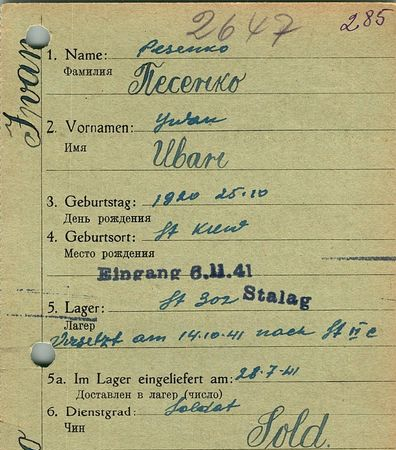 2647
285
Ivan
1. Name: Pesenko
Фамилия Песенко
2. Vornamen: Iwan
Имя Иван
3. Geburtstag: 1920 25.10
День рождения
4. Geburtsort: St Kiew
Место рождения
Eingang 6.11.41
5. Lager: St 302 Stalag
Лагерь
Versetzt am 14.10.41 nach St II C
5a. Im Lager eingeliefert am: 28.7.41
Доставлен в лагерь (число)
6. Dienstgrad: Soldat
Чин Sold.